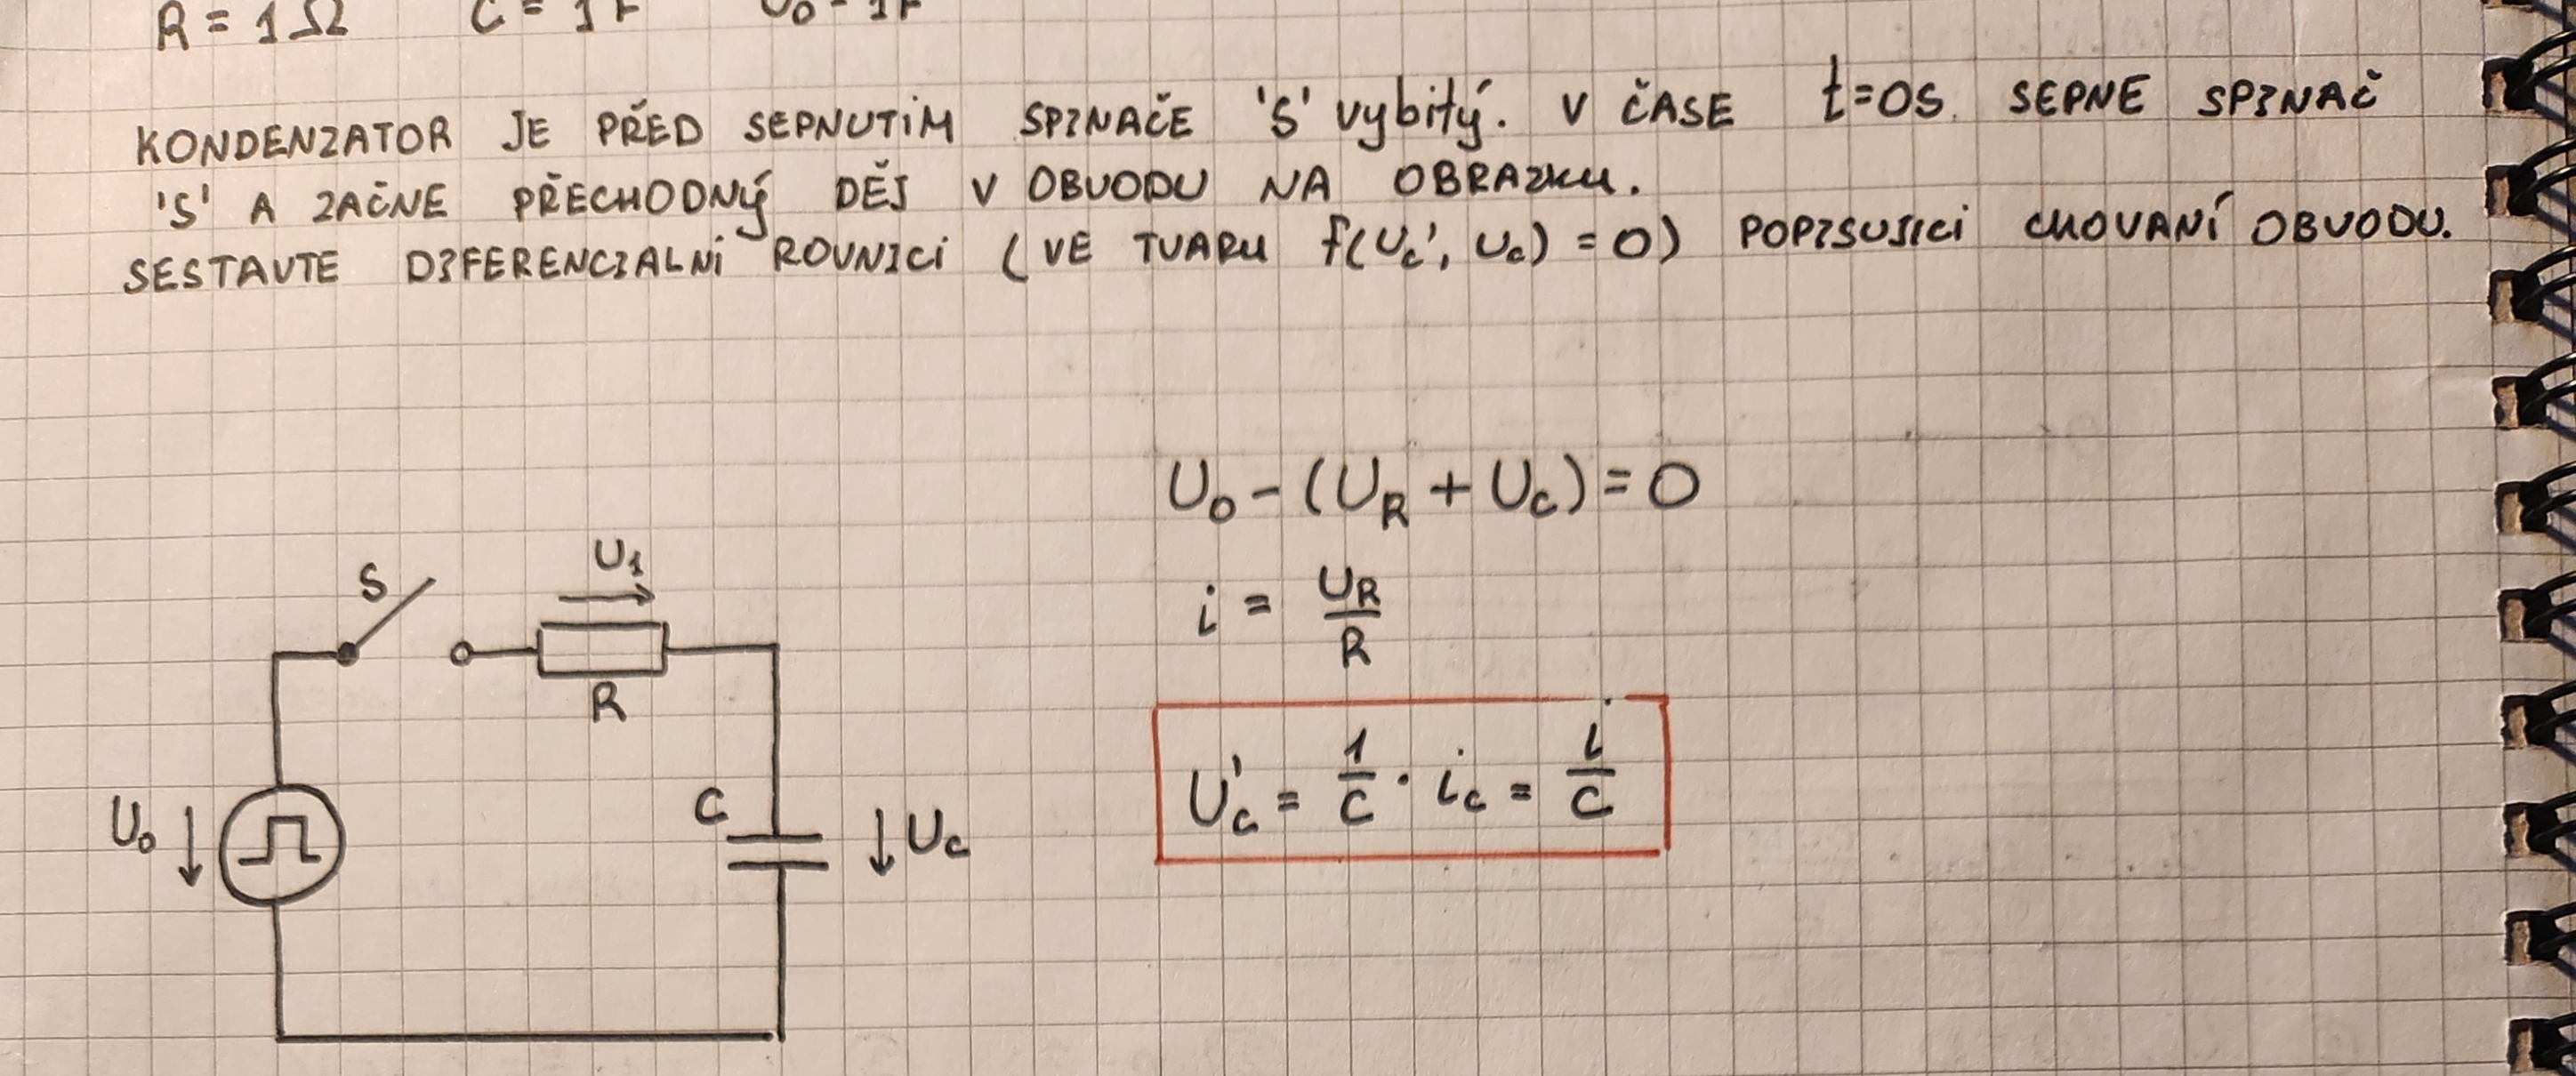 R = 1 Ω C = 1 F U₀ = 1F
KONDENZATOR JE PŘED SEPNUTIM SPINAČE 'S' vybitý. V ČASE t=0s. SEPNE SPINAČ
'S' A ZAČNE PŘECHODNÝ DĚJ V OBVODU NA OBRAZKU.
SESTAVTE DIFERENCIALNÍ ROVNICI (VE TVARU f(Uc', Uc) = 0) POPISUJICI CHOVANÍ OBVODU.
U₀ - (U_R + U_C) = 0
i = U_R / R
U'c = 1/C · i_c = i/C
S
U₁
R
U₀
C
Uc